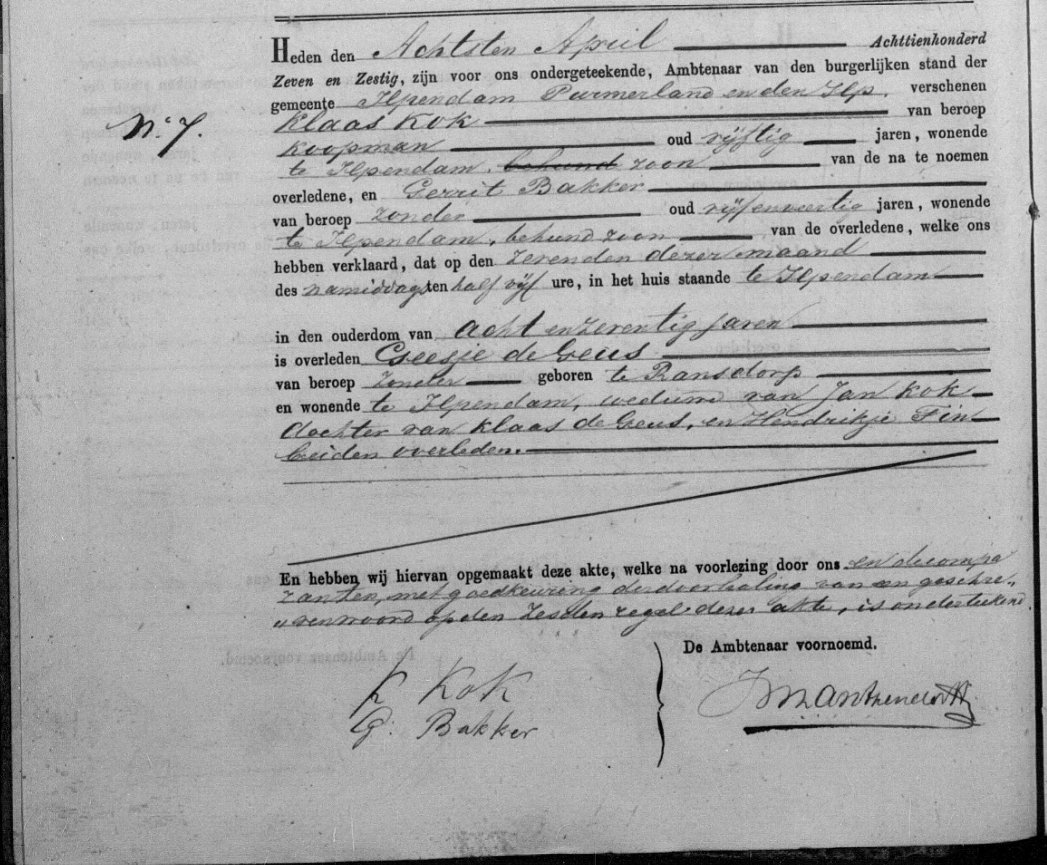 Heden den Achtsten April Achttienhonderd
Zeven en Zestig, zijn voor ons ondergeteekende, Ambtenaar van den burgerlijken stand der
gemeente Ilpendam Purmerland en den Ilp. verschenen
N.o 7. Klaas Kok van beroep
koopman oud vijftig jaren, wonende
te Ilpendam, behund zoon van de na te noemen
overledene, en Gerrit Bakker
van beroep zonder oud vijfenveertig jaren, wonende
te Ilpendam, behund zoon van de overledene, welke ons
hebben verklaard, dat op den zevenden dezer maand
des namiddags ten half vijf ure, in het huis staande te Ilpendam
in den ouderdom van acht en zeventig jaren
is overleden Geesje de Geus
van beroep zonder geboren te Ransdorp
en wonende te Ilpendam, weduwe van Jan Kok
dochter van Klaas de Geus, en Hendrikje Fin
beiden overleden.
En hebben wij hiervan opgemaakt deze akte, welke na voorlezing door ons en de compa
ranten, met goedkeuring der doorhaling van een geschre-
"ven woord op den zesden regel dezer akte, is onderteekend.
De Ambtenaar voornoemd.
K Kok
G. Bakker